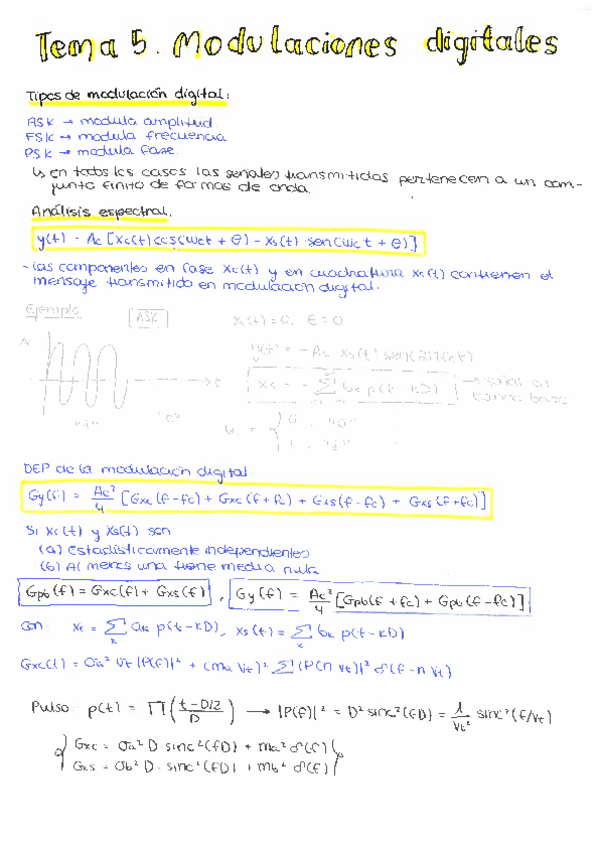 Tema 5. Modulaciones digitales
Tipos de modulación digital:
ASK → modula amplitud
FSK → modula frecuencia
PSK → modula fase.
↳ en todos los casos las señales transmitidas pertenecen a un con-
junto finito de formas de onda.
Análisis espectral.
y(t) = Ac [Xc(t) cos(ωct + θ) - Xs(t) sen(ωct + θ)]
- las componentes en fase Xc(t) y en cuadratura Xs(t) contienen el
mensaje transmitido en modulación digital.
Ejemplo [ASK] Xc(t) = 0, θ = 0
A
y(t) = -Ac Xs(t) sen(2πfct)
t
"1" "0"
DEP de la modulación digital
Gy(f) = Ac²/4 [Gxc(f-fc) + Gxc(f+fc) + Gxs(f-fc) + Gxs(f+fc)]
Si Xc(t) y Xs(t) son
(a) Estadísticamente independientes
(b) Al menos una tiene media nula
Gpb(f) = Gxc(f) + Gxs(f) , Gy(f) = Ac²/4 [Gpb(f+fc) + Gpb(f-fc)]
Con: Xc = Σk ak p(t-kD), Xs(t) = Σk bk p(t-kD)
Gxc(f) = σa² Vt |P(f)|² + (ma Vt)² Σ |P(n Vt)|² δ(f-n Vt)
Pulso: p(t) = Π((t-D/2)/D) → |P(f)|² = D² sinc²(fD) = 1/Vt² sinc²(f/Vt)
Gxc = σa² D · sinc²(fD) + ma² δ(f)
Gxs = σb² D · sinc²(fD) + mb² δ(f)